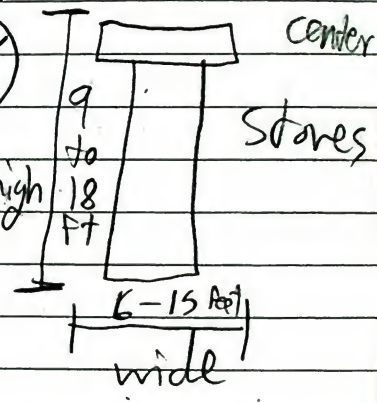 center
stones
9
to
18
Ft
high
6-15 feet
wide